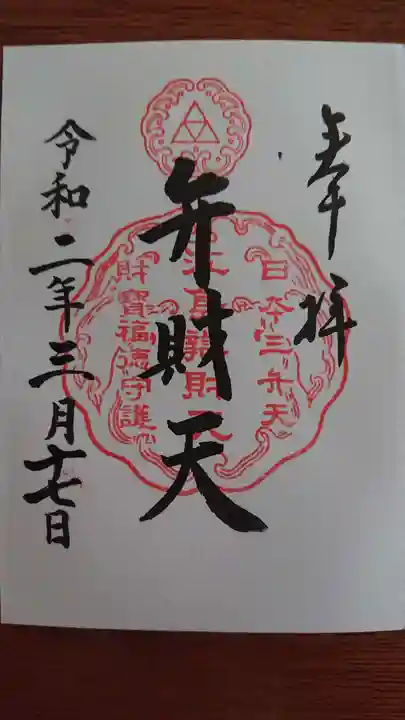 奉拝
日本三弁天
江島辨財天
財寶福徳守護
弁財天
令和二年三月十七日